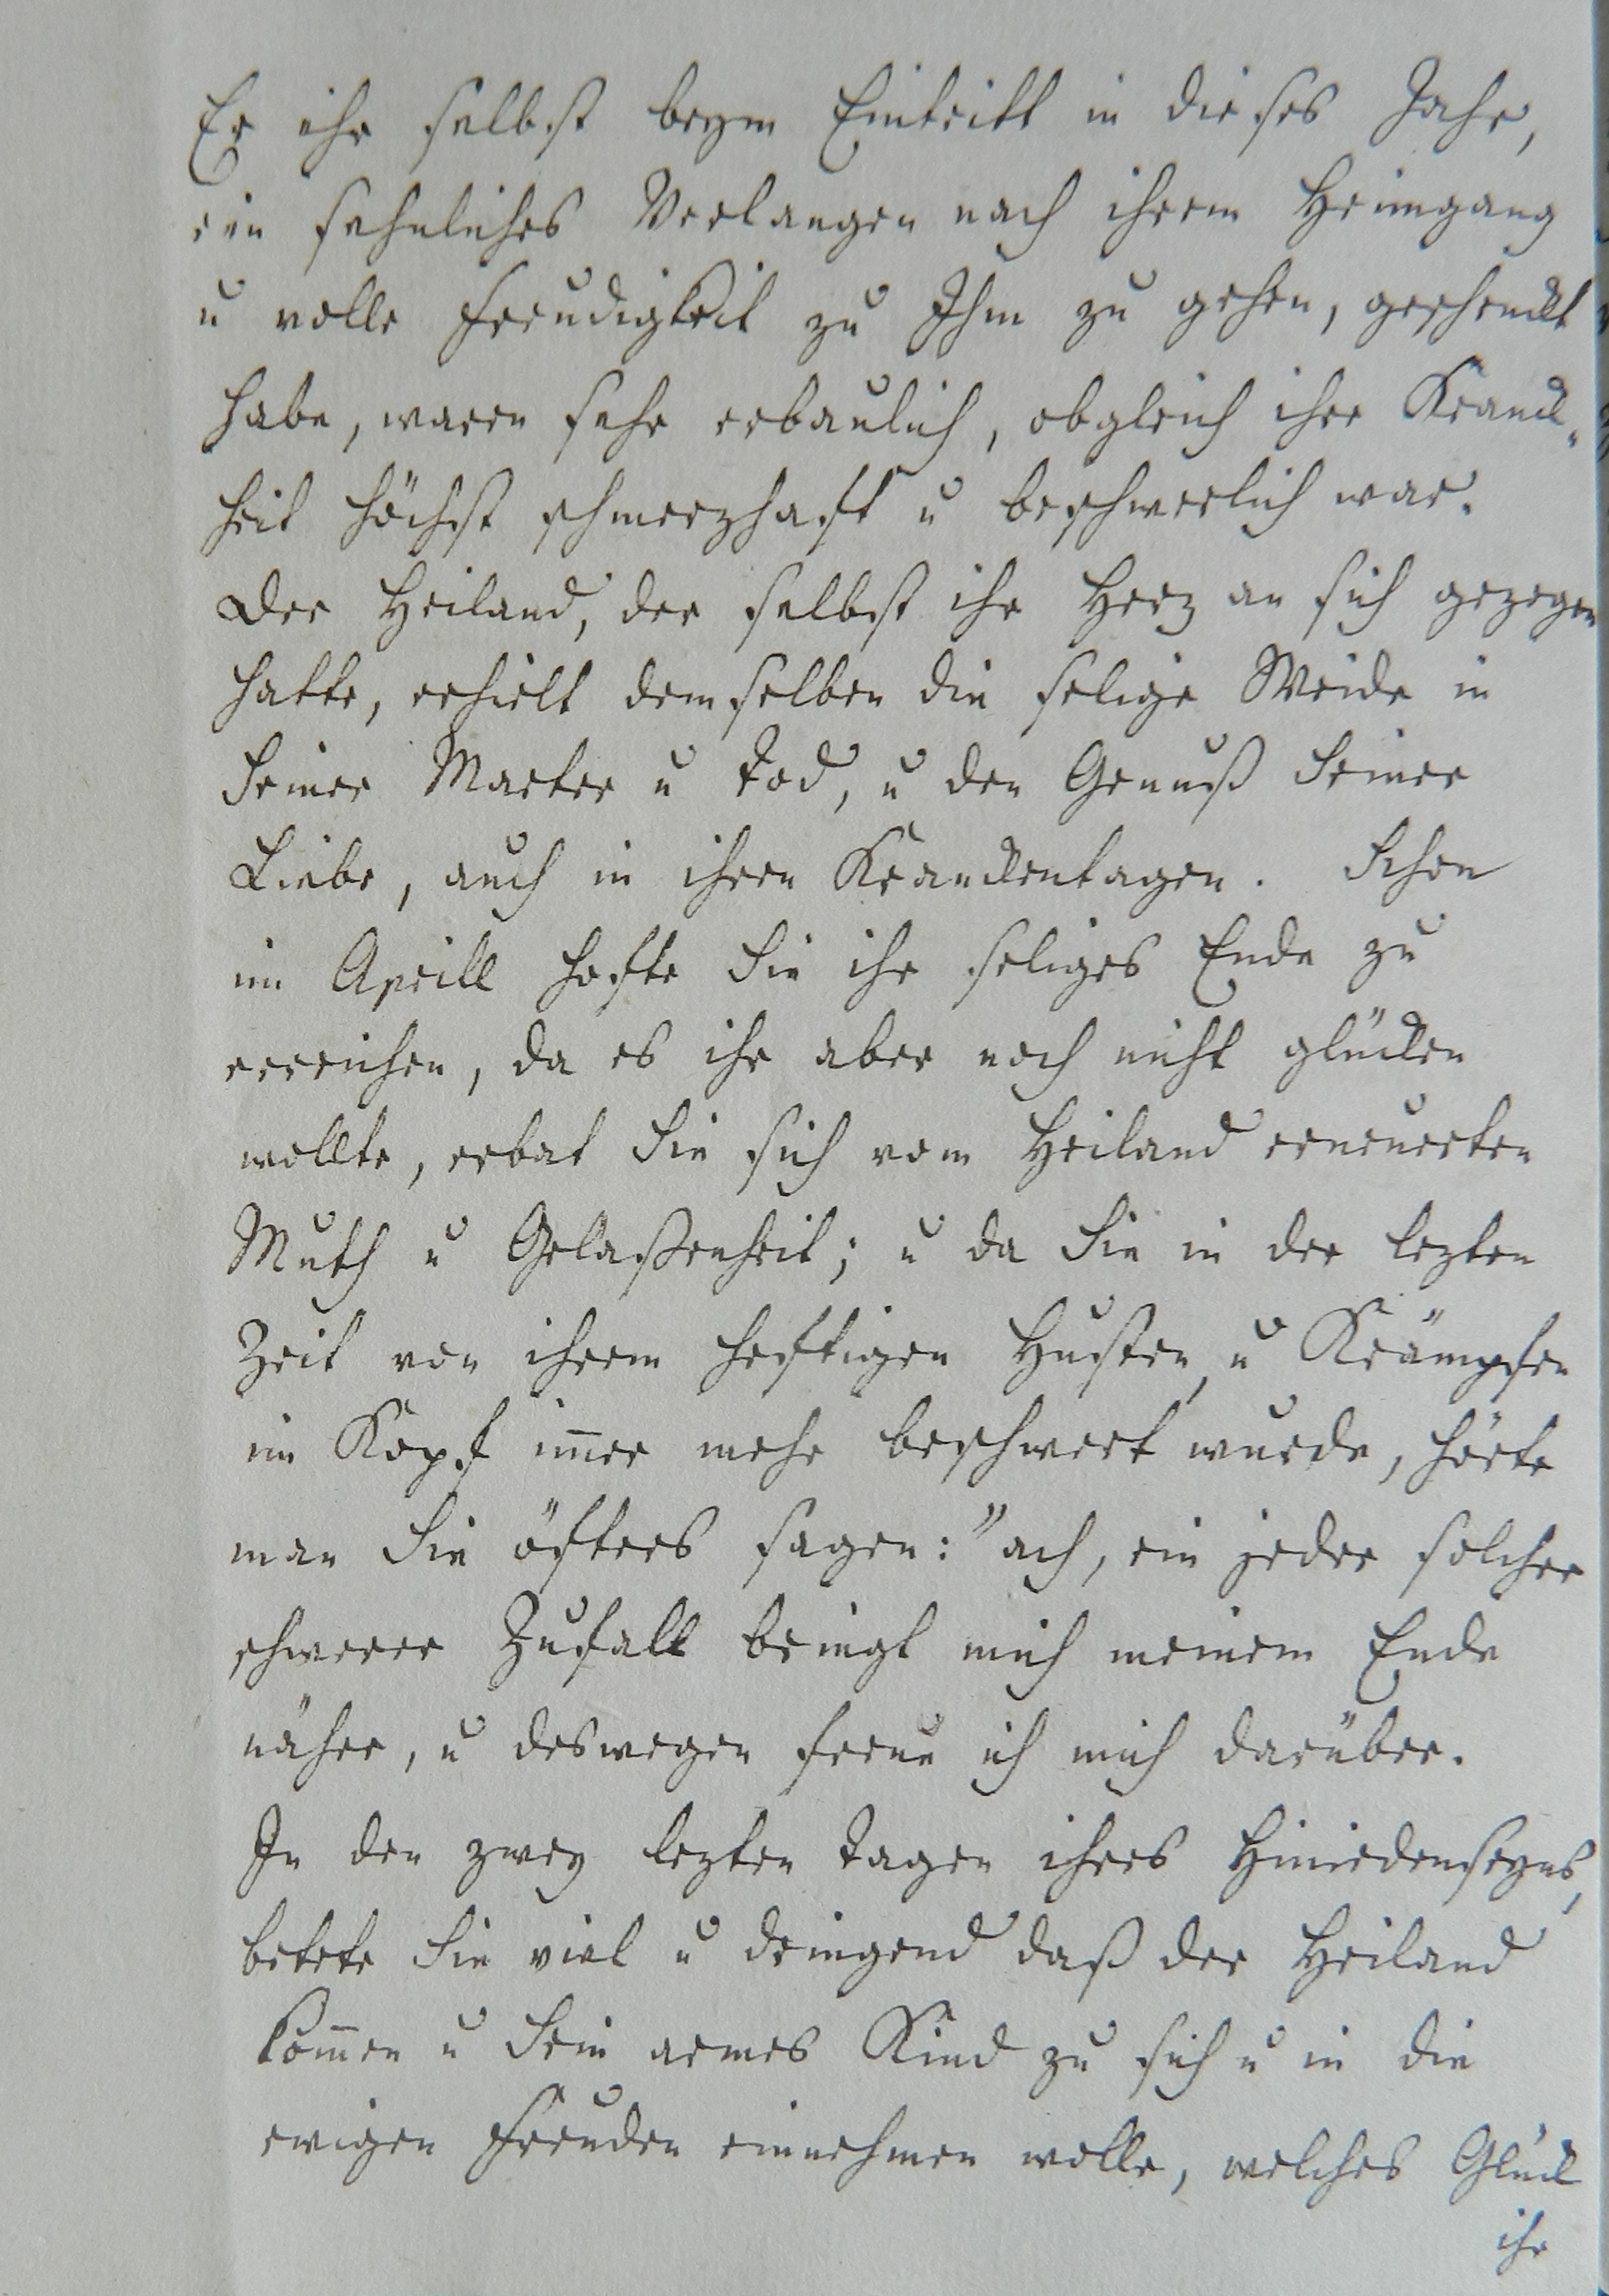 Er ihr selbst beym Eintritt in dieses Jahr,
ein sehnliches Verlangen nach ihrem Heimgang
u volle Freudigkeit zu Ihm zu gehen, geschenckt
habe, waren sehr erbaulich, obgleich ihre Kranck„
heit höchst schmerzhaft u beschwerlich war.
Der Heiland, der selbst ihr Herz an sich gezogen
hatte, erhielt demselben die selige Weide in
Seiner Marter u Tod, u den Genuß Seiner
Liebe, auch in ihren Kranckentagen. Schon
im Aprill hofte Sie ihr seliges Ende zu
erreichen, da es ihr aber noch nicht glücken
wollte, erbat Sie sich vom Heiland erneuerten
Muth u Gelaßenheit; u da Sie in der lezten
Zeit von ihrem heftigen Husten, u Krämpfen
im Kopf im̄er mehr beschwert wurde, hörte
man Sie öfters sagen: "ach, ein jeder solcher
schwerer Zufall bringt mich meinem Ende
näher, u deswegen freue ich mich darüber.
In den zwey lezten Tagen ihres Hiniedenseyns,
betete Sie viel u dringend daß der Heiland
kom̄en u Sein armes Kind zu sich u in die
ewigen Freuden einnehmen wolle, welches Glück
ihr